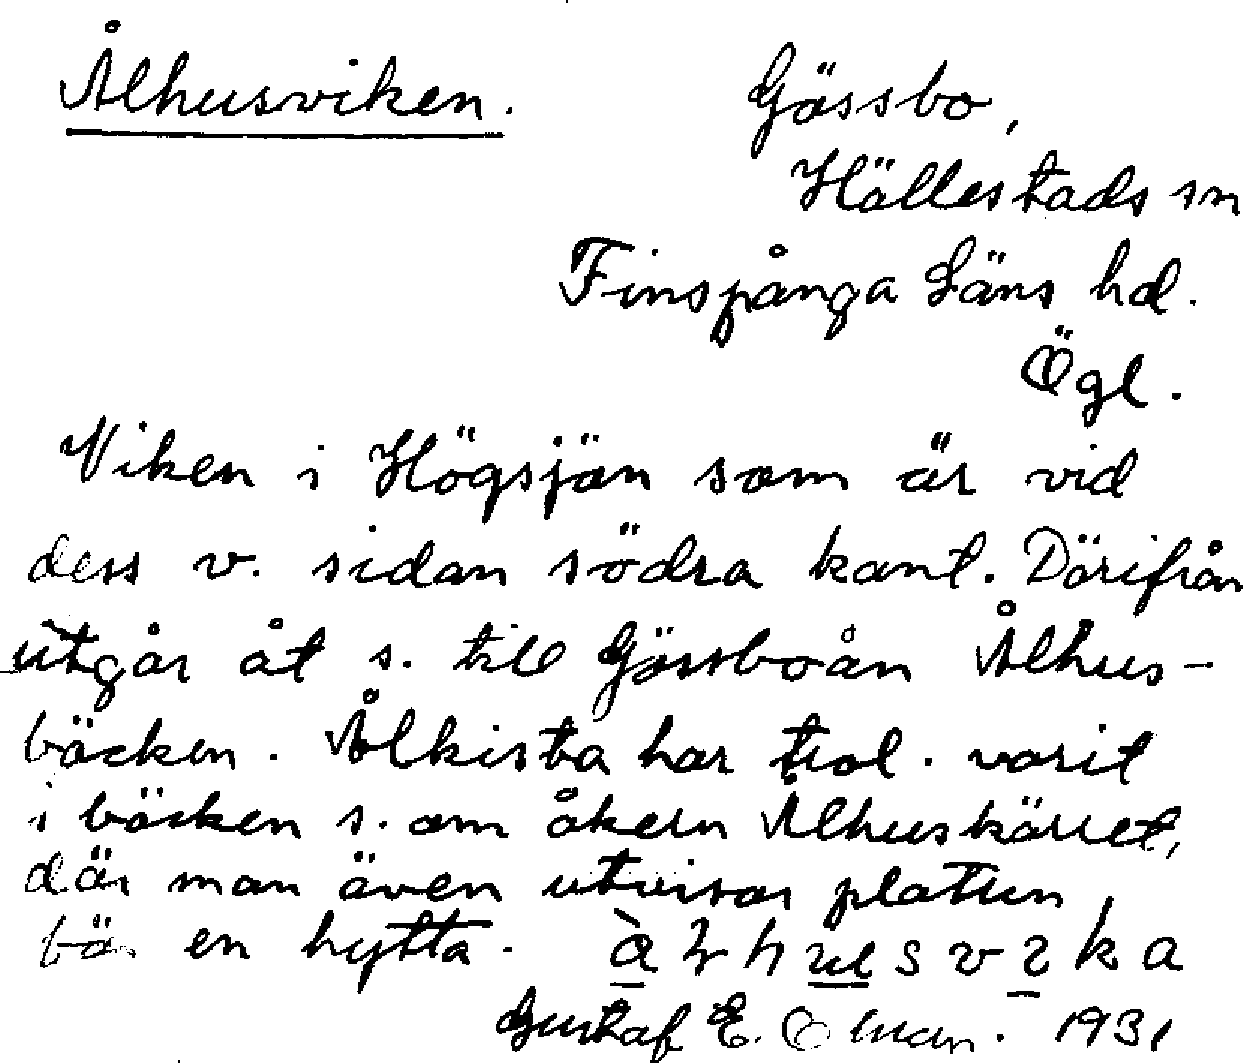 Ålhusviken.
Gässbo,
Hällestads sn
Finspånga Läns hd.
Ögl.
Viken i Högsjön som är vid
dess v. sidan södra kant. Därifrån
utgår åt s. till Gässboån Ålhus-
bäcken. Ålkista har trol. varit
i bäcken s. om åkern Ålhuskärret,
där man även utvisar platsen
för en hytta.
Gustaf E. Öman. 1931